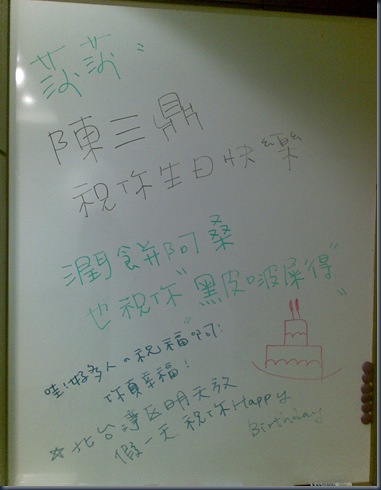 莎莎：
陳三鼎
祝你生日快樂
潤餅阿桑
也祝你"黑皮啵屎得"
哇!好多人の祝福"啊!
你真幸福!
☆北台灣區明天放
假一天 祝你Happy
Birthday